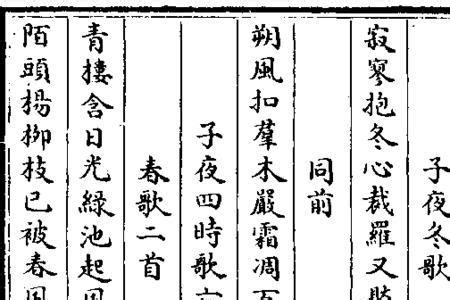 子夜冬歌
寂寥抱冬心裁羅又
同前
朔風扣羣木嚴霜凋百
子夜四時歌六
春歌二首
青樓含日光綠池起風
陌頭楊柳枝已被春風